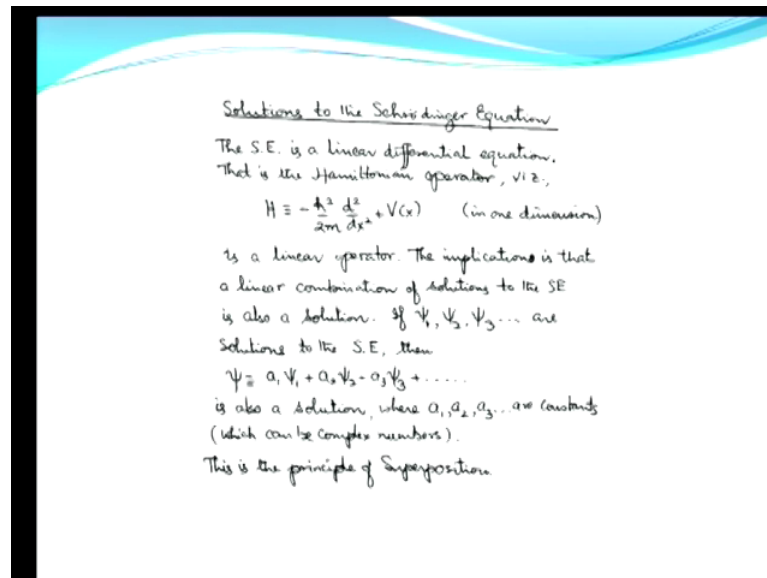 Solutions to the Schrödinger Equation
The S.E. is a linear differential equation.
That is the Hamiltonian operator, viz.,
H ≡ - ħ²/2m d²/dx² + V(x) (in one dimension)
is a linear operator. The implications is that
a linear combination of solutions to the SE
is also a solution. If Ψ₁, Ψ₂, Ψ₃ ... are
Solutions to the S.E, then
Ψ = a₁Ψ₁ + a₂Ψ₂ - a₃Ψ₃ + .....
is also a solution, where a₁, a₂, a₃... are constants
(which can be complex numbers).
This is the principle of Superposition.